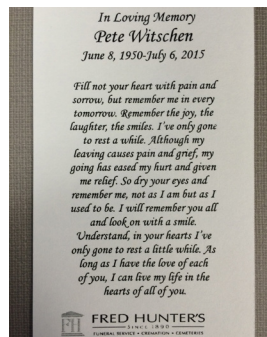 In Loving Memory
Pete Witschen
June 8, 1950-July 6, 2015
Fill not your heart with pain and
sorrow, but remember me in every
tomorrow. Remember the joy, the
laughter, the smiles. I've only gone
to rest a while. Although my
leaving causes pain and grief, my
going has eased my hurt and given
me relief. So dry your eyes and
remember me, not as I am but as I
used to be. I will remember you all
and look on with a smile.
Understand, in your hearts I've
only gone to rest a little while. As
long as I have the love of each
of you, I can live my life in the
hearts of all of you.
FH
FRED HUNTER'S
SINCE 1890
FUNERAL SERVICE • CREMATION • CEMETERIES